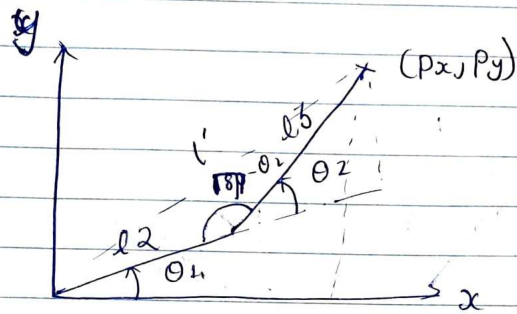 y
(Px, Py)
l3
180-θ2
θ2
l2
θ1
x